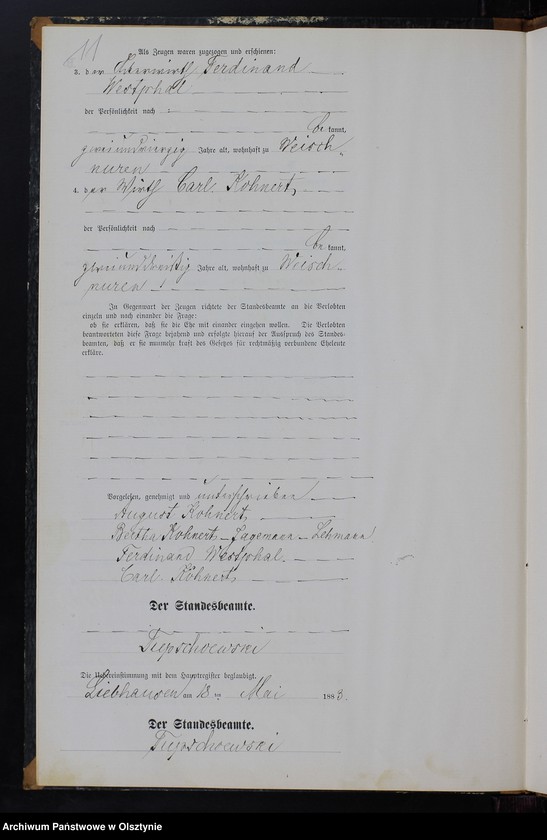 11
Als Zeugen waren zugezogen und erschienen:
3. der Ferdinand
Westphal
der Persönlichkeit nach
be kannt,
zweiundvierzig Jahre alt, wohnhaft zu Weisch-
nuren
4. der Wirth Carl Kohnert,
der Persönlichkeit nach
be kannt,
zweiunddreißig Jahre alt, wohnhaft zu Weisch-
nuren
In Gegenwart der Zeugen richtete der Standesbeamte an die Verlobten
einzeln und nach einander die Frage:
ob sie erklären, daß sie die Ehe mit einander eingehen wollen. Die Verlobten
beantworteten diese Frage bejahend und erfolgte hierauf der Ausspruch des Standes-
beamten, daß er sie nunmehr kraft des Gesetzes für rechtmäßig verbundene Eheleute
erkläre.
Vorgelesen, genehmigt und unterschrieben
August Kohnert
Bertha Kohnert - Jagemann - Lehmann
Ferdinand Westphal.
Carl Kohnert
Der Standesbeamte.
Die Uebereinstimmung mit dem Hauptregister beglaubigt.
Liebhausen am 18 ten Mai 1883.
Der Standesbeamte.
Archiwum Państwowe w Olsztynie